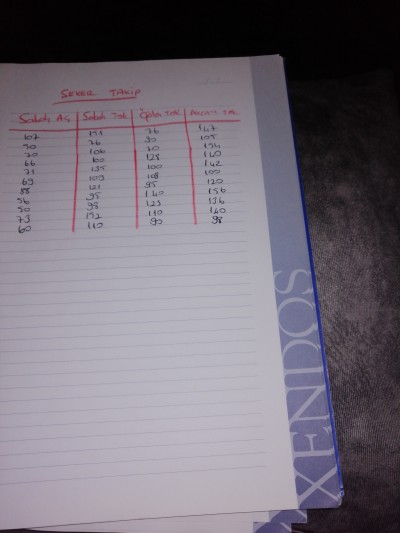 ŞEKER TAKİP
Sabah Aç Sabah Tok Öğle Tok Akşam Tok
107 151 76 147
70 76 90 105
70 106 70 154
66 60 128 140
71 135 100 142
69 109 108 100
88 121 95 120
56 95 140 156
50 98 123 136
73 152 110 140
60 110 90 98
XENDOS